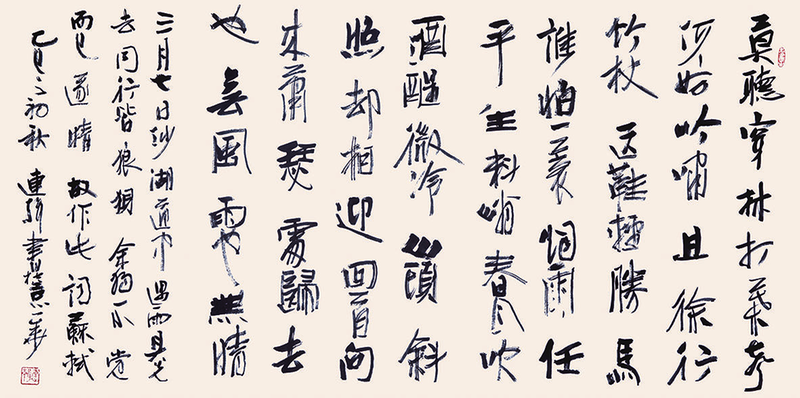 莫聽穿林打葉聲
何妨吟嘯且徐行
竹杖芒鞋輕勝馬
誰怕一蓑烟雨任
平生料峭春風吹
酒醒微冷山頭斜
照却相迎回首向
来蕭瑟處歸去
也無風雨也無晴
三月七日沙湖道中遇雨具先
去同行皆狼狽余獨不覺
而已遂晴故作此詞蘇軾
乙巳之初秋連書